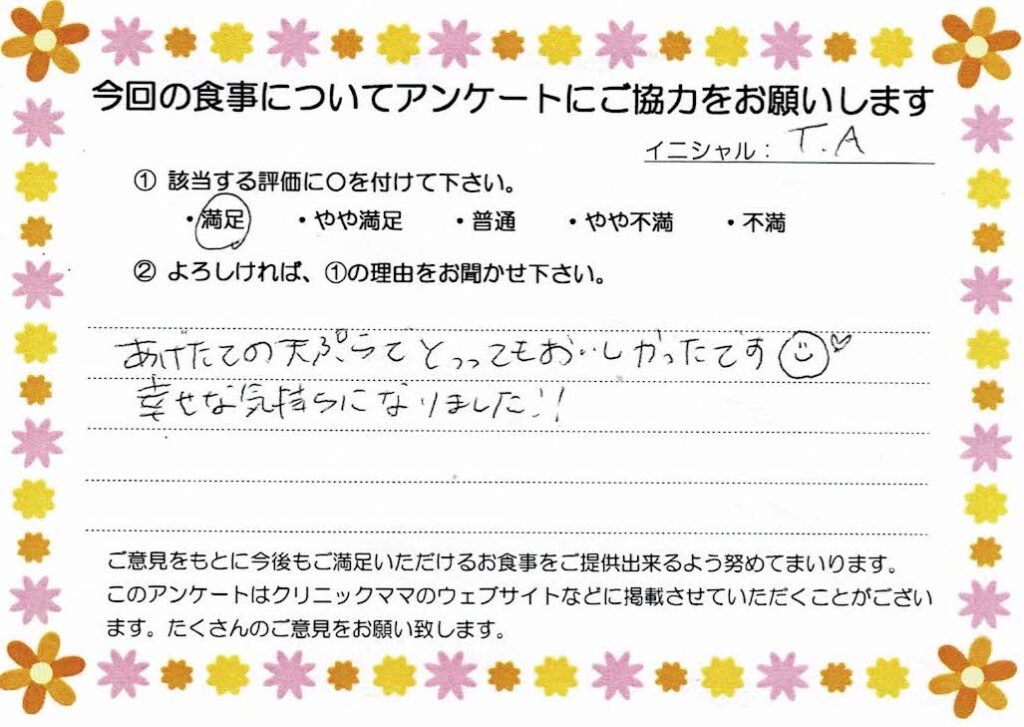 今回の食事についてアンケートにご協力をお願いします
イニシャル： T.A
① 該当する評価に〇を付けて下さい。
・満足 ・やや満足 ・普通 ・やや不満 ・不満
② よろしければ、①の理由をお聞かせ下さい。
あげたての天ぷらでとってもおいしかったです
幸せな気持ちになりました!!
ご意見をもとに今後もご満足いただけるお食事をご提供出来るよう努めてまいります。
このアンケートはクリニックママのウェブサイトなどに掲載させていただくことがござい
ます。たくさんのご意見をお願い致します。